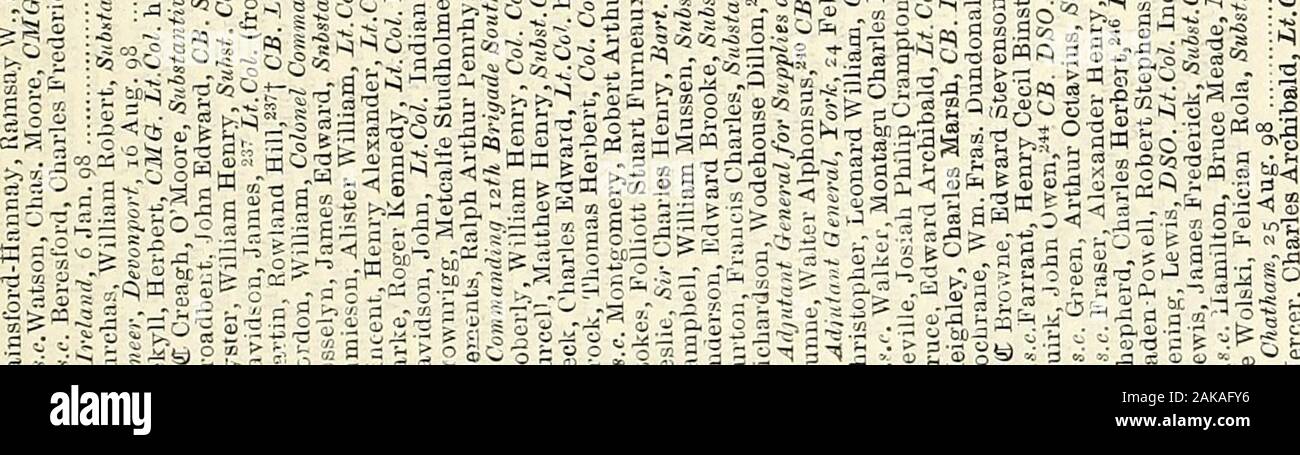 ainsford-Hannay, Ramsay W
s.c. Wabson, Chas. Moore, CMG
s.c. Beresford, Charles Frederic
Ireland, 6 Jan. 98
urchas, William Robert, Substa
neer, Devonport, 16 Aug. 98
kyll, Herbert, CMG. Lt.Col. h
Creagh, O'Moore, Substantiv
roadbent, John Edward, CB. S
yster, William Henry, Subst. Co
avidson, James,237 Lt. Col. (fro
artin, Rowland Hill,237† CB. L
ordon, William, Colonel Comma
osselyn, James Edward, Substa
amieson, Alister William, Lt. Co
incent, Henry Alexander, Lt. C
arke, Roger Kennedy, Lt.Col.
avidson, John, Lt.Col. Indian
ownrigg, Metcalfe Studholme
ements, Ralph Arthur Penrhy
Commanding 12th Brigade South
oberly, William Henry, Col. Co
urcell, Matthew Henry, Subst. C
eck, Charles Edward, Lt.Col. h
rock, Thomas Herbert, Col. Co
s.c. Montgomery, Robert Arthu
okes, Folliott Stuart Furneaux
eslie, Sir Charles Henry, Bart.
ampbell, William Mussen, Subs
anderson, Edward Brooke, Subs
urton, Francis Charles, Substa
ichardson, Wodehouse Dillon,2
Adjutant General for Supplies a
unne, Walter Alphonsus,240 CB
Adjutant General, York, 24 Fe
hristopher, Leonard William, C
s.c. Walker, Montagu Charles
eville, Josiah Philip Crampton
ruce, Edward Archibald, Lt. Co
eighley, Charles Marsh, CB. L
ochrane, Wm. Fras. Dundonal
Browne, Edward Stevenson
s.c. Farrant, Henry Cecil Binst
uirk, John Owen,244 CB. DSO.
s.c. Green, Arthur Octavius, S
s.c. Fraser, Alexander Henry,
hepherd, Charles Herbert,246
aden-Powell, Robert Stephens
ening, Lewis, DSO. Lt.Col. Ind
ewis, James Frederick, Subst. C
s.c. Hamilton, Bruce Meade,
e Wolski, Felician Rola, Subst.
Chatham, 25 Aug. 98
ercer, Charles Archibald, Lt. C
a
alamy
Image ID: 2AKAFY6
www.alamy.com